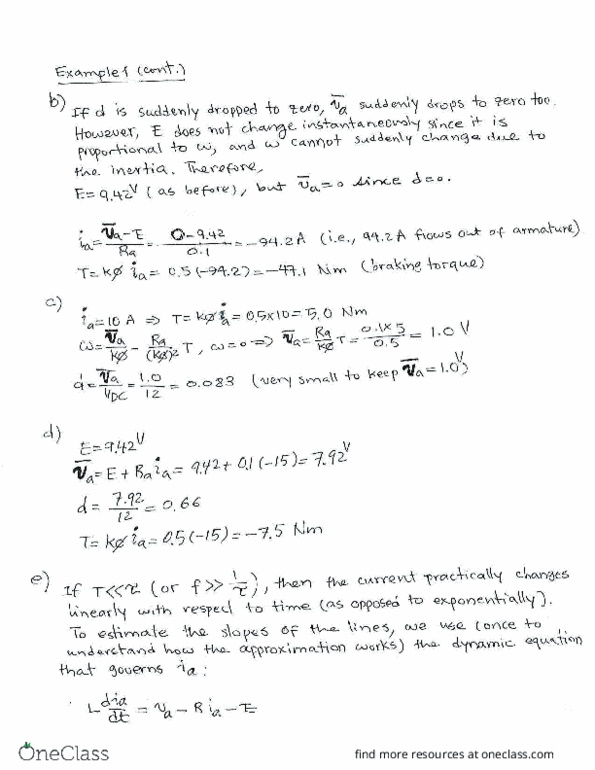 Example 1 (cont.)
b) If d is suddenly dropped to zero, v̅a suddenly drops to zero too.
However, E does not change instantaneously since it is
proportional to ω, and ω cannot suddenly change due to
the inertia. Therefore,
E=9.42V (as before), but v̅a=0 since d=0.
ia = (v̅a-E)/Ra = (0-9.42)/0.1 = -94.2A (i.e., 94.2A flows out of armature)
T=kø ia = 0.5(-94.2) = -47.1 Nm (braking torque)
c) ia=10 A ⇒ T=kø ia = 0.5x10 = 5.0 Nm
ω = v̅a/kø - Ra/(kø)² T, ω=0 ⇒ v̅a = Ra/kø T = (0.1x5)/0.5 = 1.0 V
d = v̅a/VDC = 1.0/12 = 0.083 (very small to keep v̅a=1.0V)
d) E=9.42V
v̅a = E + Ra ia = 9.42 + 0.1(-15) = 7.92V
d = 7.92/12 = 0.66
T = kø ia = 0.5(-15) = -7.5 Nm
e) If T<<τ (or f>> 1/τ), then the current practically changes
linearly with respect to time (as opposed to exponentially).
To estimate the slopes of the lines, we use (once to
understand how the approximation works) the dynamic equation
that governs ia:
L dia/dt = va - R ia - E
OneClass
find more resources at oneclass.com